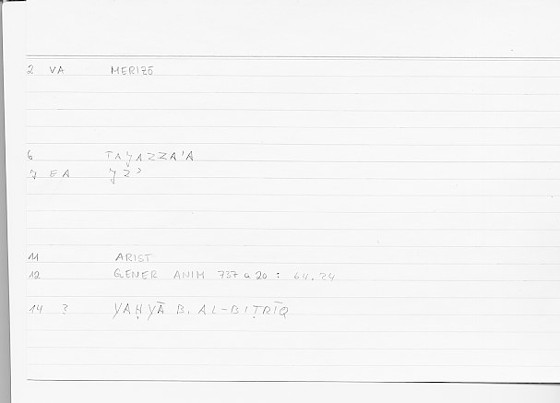 2 VA MERIZŌ
6 TAJAZZA'A
7 EA JZ'
11 ARIST
12 GENER ANIM 737 a 20 : 64.24
14 ? YAḤYĀ B. AL-BIṬRĪQ